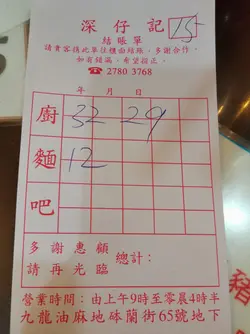 深仔記
15
結賬單
請貴客携此單往櫃面結賬，多謝合作，
如有錯漏，希望指正。
☎ 2780 3768
年 月 日
廚 32 29
麵 12
吧
多謝惠顧
請再光臨
總計：
營業時間：由上午9時至零晨4時半
九龍油麻地砵蘭街65號地下